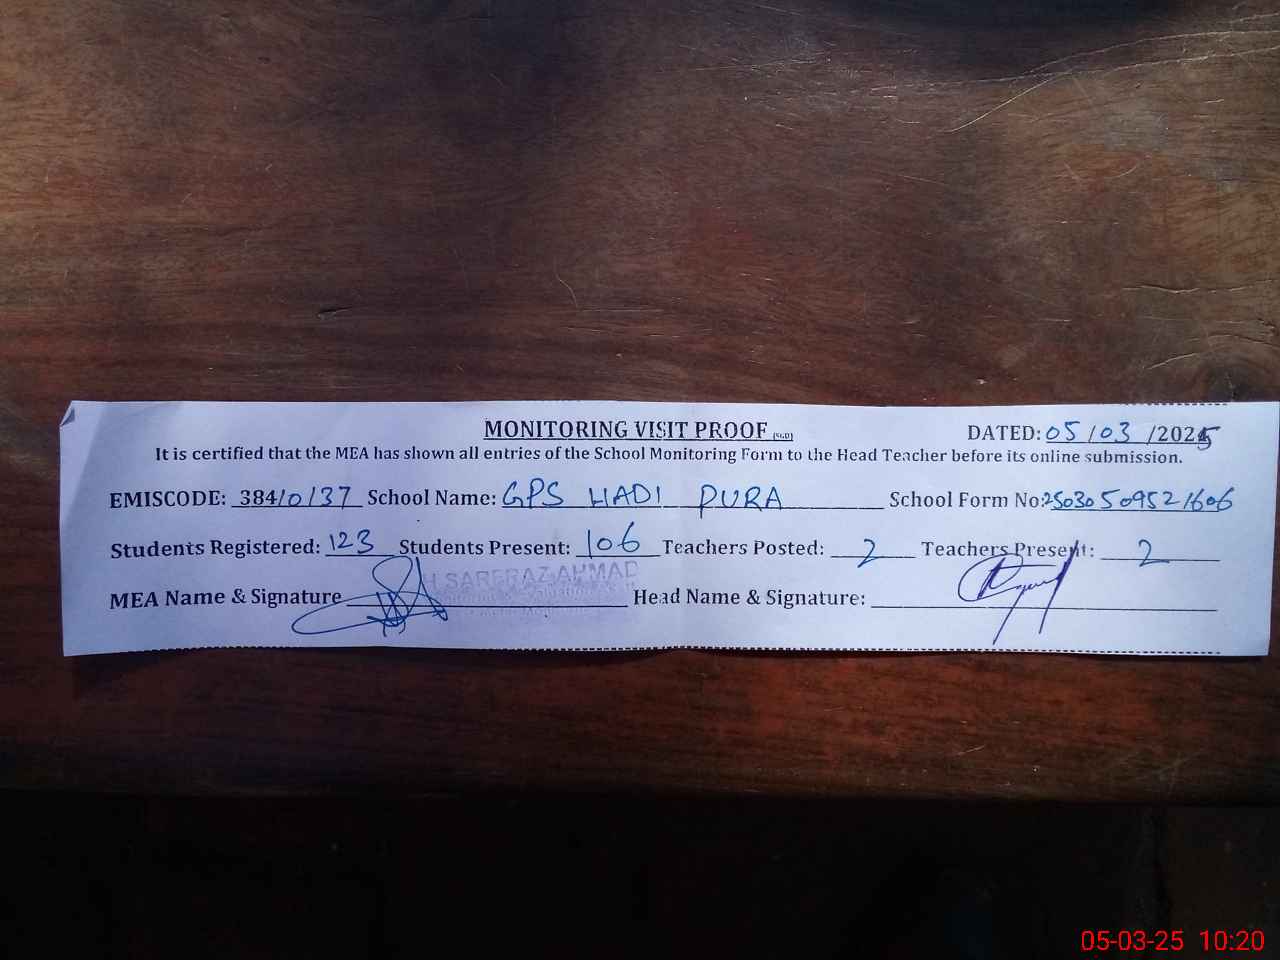 MONITORING VISIT PROOF (SGD)
DATED: 05/03/2025
It is certified that the MEA has shown all entries of the School Monitoring Form to the Head Teacher before its online submission.
EMISCODE: 384/0/37 School Name: GPS HADI PURA School Form No: 2503050952/606
Students Registered: 123 Students Present: 106 Teachers Posted: 2 Teachers Present: 2
MEA Name & Signature SARFRAZ AHMAD Head Name & Signature:
05-03-25 10:20